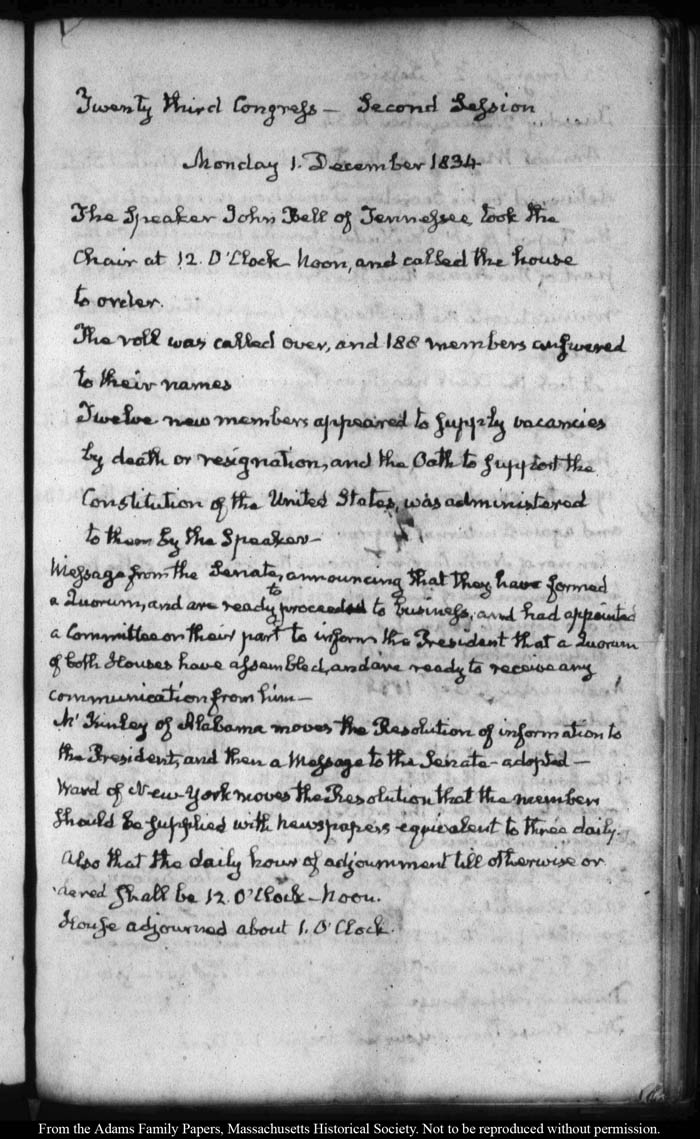 Twenty third Congress — Second Session
Monday 1. December 1834
The Speaker John Bell of Tennessee, took the
Chair at 12. O'Clock Noon, and called the house
to order.
The roll was called over, and 188 members answered
to their names
Twelve new members appeared to supply vacancies
by death or resignation, and the Oath to support the
Constitution of the United States, was administered
to them by the Speaker—
Message from the Senate, announcing that they have formed
a Quorum, and are ready to proceed to business, and had appointed
a Committee on their part to inform the President that a Quorum
of both Houses have assembled, and are ready to receive any
communication from him—
McKinley of Alabama moves the Resolution of information to
the President, and then a Message to the Senate—adopted—
Ward of New-York moves the Resolution that the members
should be supplied with newspapers equivalent to three daily.
Also that the daily hour of adjournment till otherwise or
dered shall be 12. O'Clock—Noon.
House adjourned about 1. O'Clock.
From the Adams Family Papers, Massachusetts Historical Society. Not to be reproduced without permission.